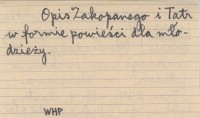 Opis Zakopanego i Tatr
w formie powieści dla mło-
dzieży.
WHP